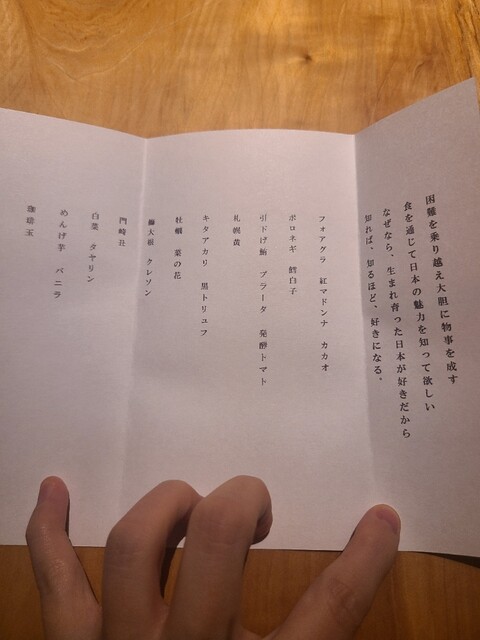 困難を乗り越え大胆に物事を成す
食を通じて日本の魅力を知って欲しい
なぜなら、生まれ育った日本が好きだから
知れば、知るほど、好きになる。
フォアグラ 紅マドンナ カカオ
ポロネギ 鱈白子
引下げ鮪 ブラータ 発酵トマト
札幌黄
キタアカリ 黒トリュフ
牡蠣 菜の花
大根 クレソン
門崎丑
白菜 タヤリン
めんげ芋 バニラ
珈琲玉